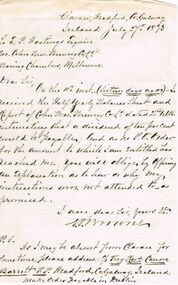 Cavan, Headford, Co. Galway
Ireland July 27th 1893
To E. P. Hastings Esquire
Sec. John's Brewery Co. Ltd
Chambers, Melbourne
Dear Sir,
On the 18th inst. (thirteen days ago) I
received the Half Yearly Balance Sheet and
Report of John's Brewery Co. Ltd with
intimation that a dividend of ten per cent
would be payable, and a P.O. Order
for the amount to which I am entitled has
reached me, you will oblige by offering
an explanation as to how or why my
instructions were not attended to as
promised.
I am dear Sir, Yours etc
P.S.
As I may be absent from Cavan for
sometime, please address, c/o Very Revd. Canon
Barrett P.P. Headford, Co Galway, Ireland.
Make Order payable in Dublin